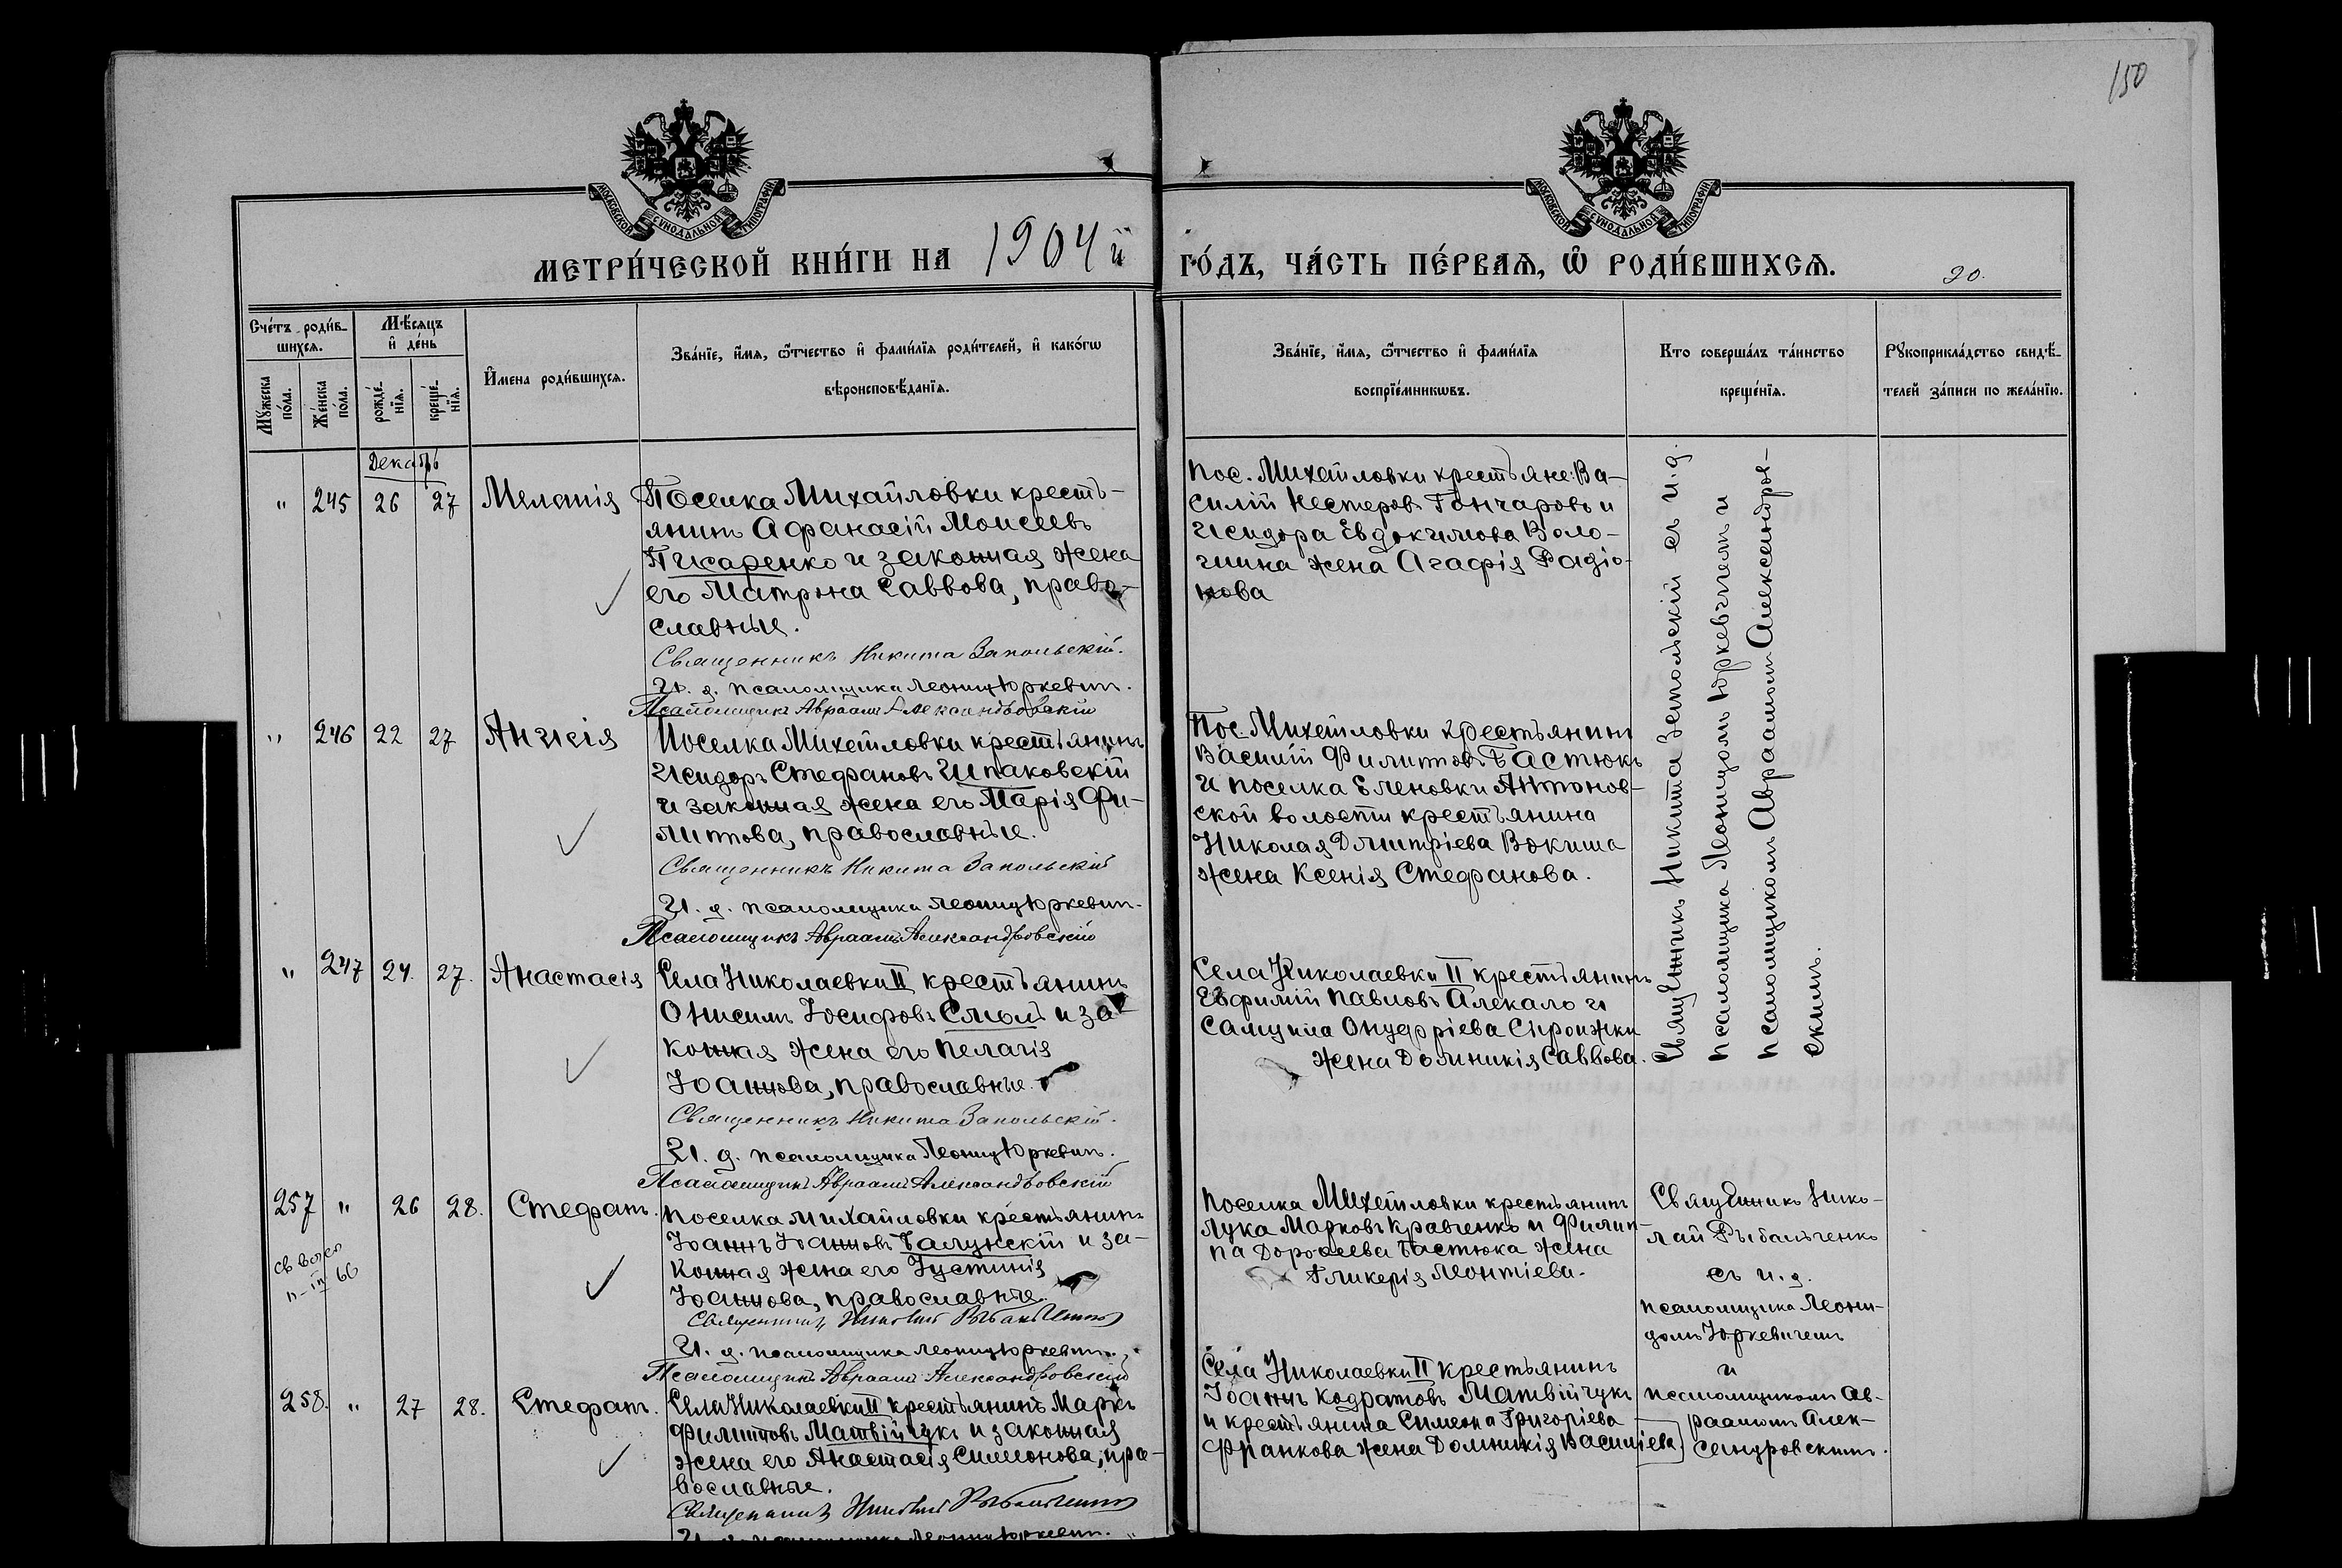 150
МОСКОВСКОЙ СѴНОДАЛЬНОЙ ТИПОГРАФІИ
МОСКОВСКОЙ СѴНОДАЛЬНОЙ ТИПОГРАФІИ
МЕТРИ́ЧЕСКОЙ КНИ́ГИ НА 1904 й ГО́ДЪ, ЧА́СТЬ ПЕ́РВАѦ, Ѡ РОДИ́ВШИХСѦ.
20.
Сче́тъ роди́в-
шихсѧ.
Мꙋжеска по́ла.
Же́нска по́ла.
Мѣ́сѧцъ и҆ де́нь
рожде́-нїѧ.
креще́-нїѧ.
И҆мена роди́вшихсѧ.
Зва́нїе, и҆́мѧ, ѻ҆́тчество и҆ фами́лїѧ роди́телей, и҆ како́гѡ
вѣроисповѣ́данїѧ.
Зва́нїе, и҆́мѧ, ѻ҆́тчество и҆ фами́лїѧ
воспрїе́мникѡвъ.
Кто соверша́лъ та́инство
креще́нїѧ.
Рꙋкоприкла́дство свидѣ́-
телей за́писи по жела́нїю.
Декабрь
" 245 26 27 Меланія
Поселка Михайловки кресть-
янинъ Афанасій Моисеевъ
Писаренко и законная жена
его Матрона Саввова, право-
славные.
Священникъ Никита Запольскій.
И. д. псаломщика Леонид Юркевич.
Псаломщикъ Авраамъ Александровскій
Пос. Михайловки крестьяне: Ва-
силій Нестеровъ Гончаровъ и
Исидора Евдокимова Воло-
шина жена Агафія Радіо-
нова
" 246 22 27 Анисія
Поселка Михайловки крестьянинъ
Исидоръ Стефановъ Шпаковскій
и законная жена его Марія Фи-
липпова, православные.
Священникъ Никита Запольскій
И. д. псаломщика Леонид Юркевич.
Псаломщикъ Авраамъ Александровскій
Пос. Михайловки крестьянинъ
Василій Филиповъ Бастюкъ
и поселка Еленовки Антонов-
ской волости крестьянина
Николая Дмитріева
жена Ксенія Стефанова.
" 247 24. 27. Анастасія
Села Николаевки II крестьянинъ
Онисимъ Іосифовъ и за-
конная жена его Пелагія
Іоаннова, православные.
Священникъ Никита Запольскій.
И. д. псаломщика Леонид Юркевич.
Псаломщикъ Авраамъ Александровскій
Села Николаевки II крестьянинъ
Евфимій Павловъ Алекало и
Самуила Онуфріева
жена Домникія Саввова.
Священникъ Никита Запольскій съ и. д.
псаломщика Леонидомъ Юркевичемъ и
псаломщикомъ Авраамомъ Александров-
скимъ.
257 " 26 28. Стефанъ.
Поселка Михайловки крестьянинъ
Іоаннъ Іоанновъ Балунскій и за-
конная жена его Іустинія
Іоаннова, православные.
Священникъ Николай Рыбальченко
И. д. псаломщика Леонид Юркевич.
Псаломщикъ Авраамъ Александровскій
Поселка Михайловки крестьянинъ
Лука Марковъ Кравченко и Филип-
па Дорофеева Бастюка жена
Гликерія Леонтіева.
Священникъ Нико-
лай Рыбальченко
съ и. д.
псаломщика Леони-
домъ Юркевичемъ
и
псаломщикомъ Ав-
раамомъ Алек-
сандровскимъ.
258. " 27 28. Стефанъ.
Села Николаевки II крестьянинъ Маркъ
Филипповъ Матвійчукъ и законная
жена его Анастасія Симеонова, пра-
вославные.
Священникъ Николай Рыбальченко
И. д. псаломщика Леонид Юркевич.
Села Николаевки II крестьянинъ
Іоаннъ Кодратовъ Матвійчукъ
и крестьянина Симеона Григоріева
Франкова жена Домникія Васильева